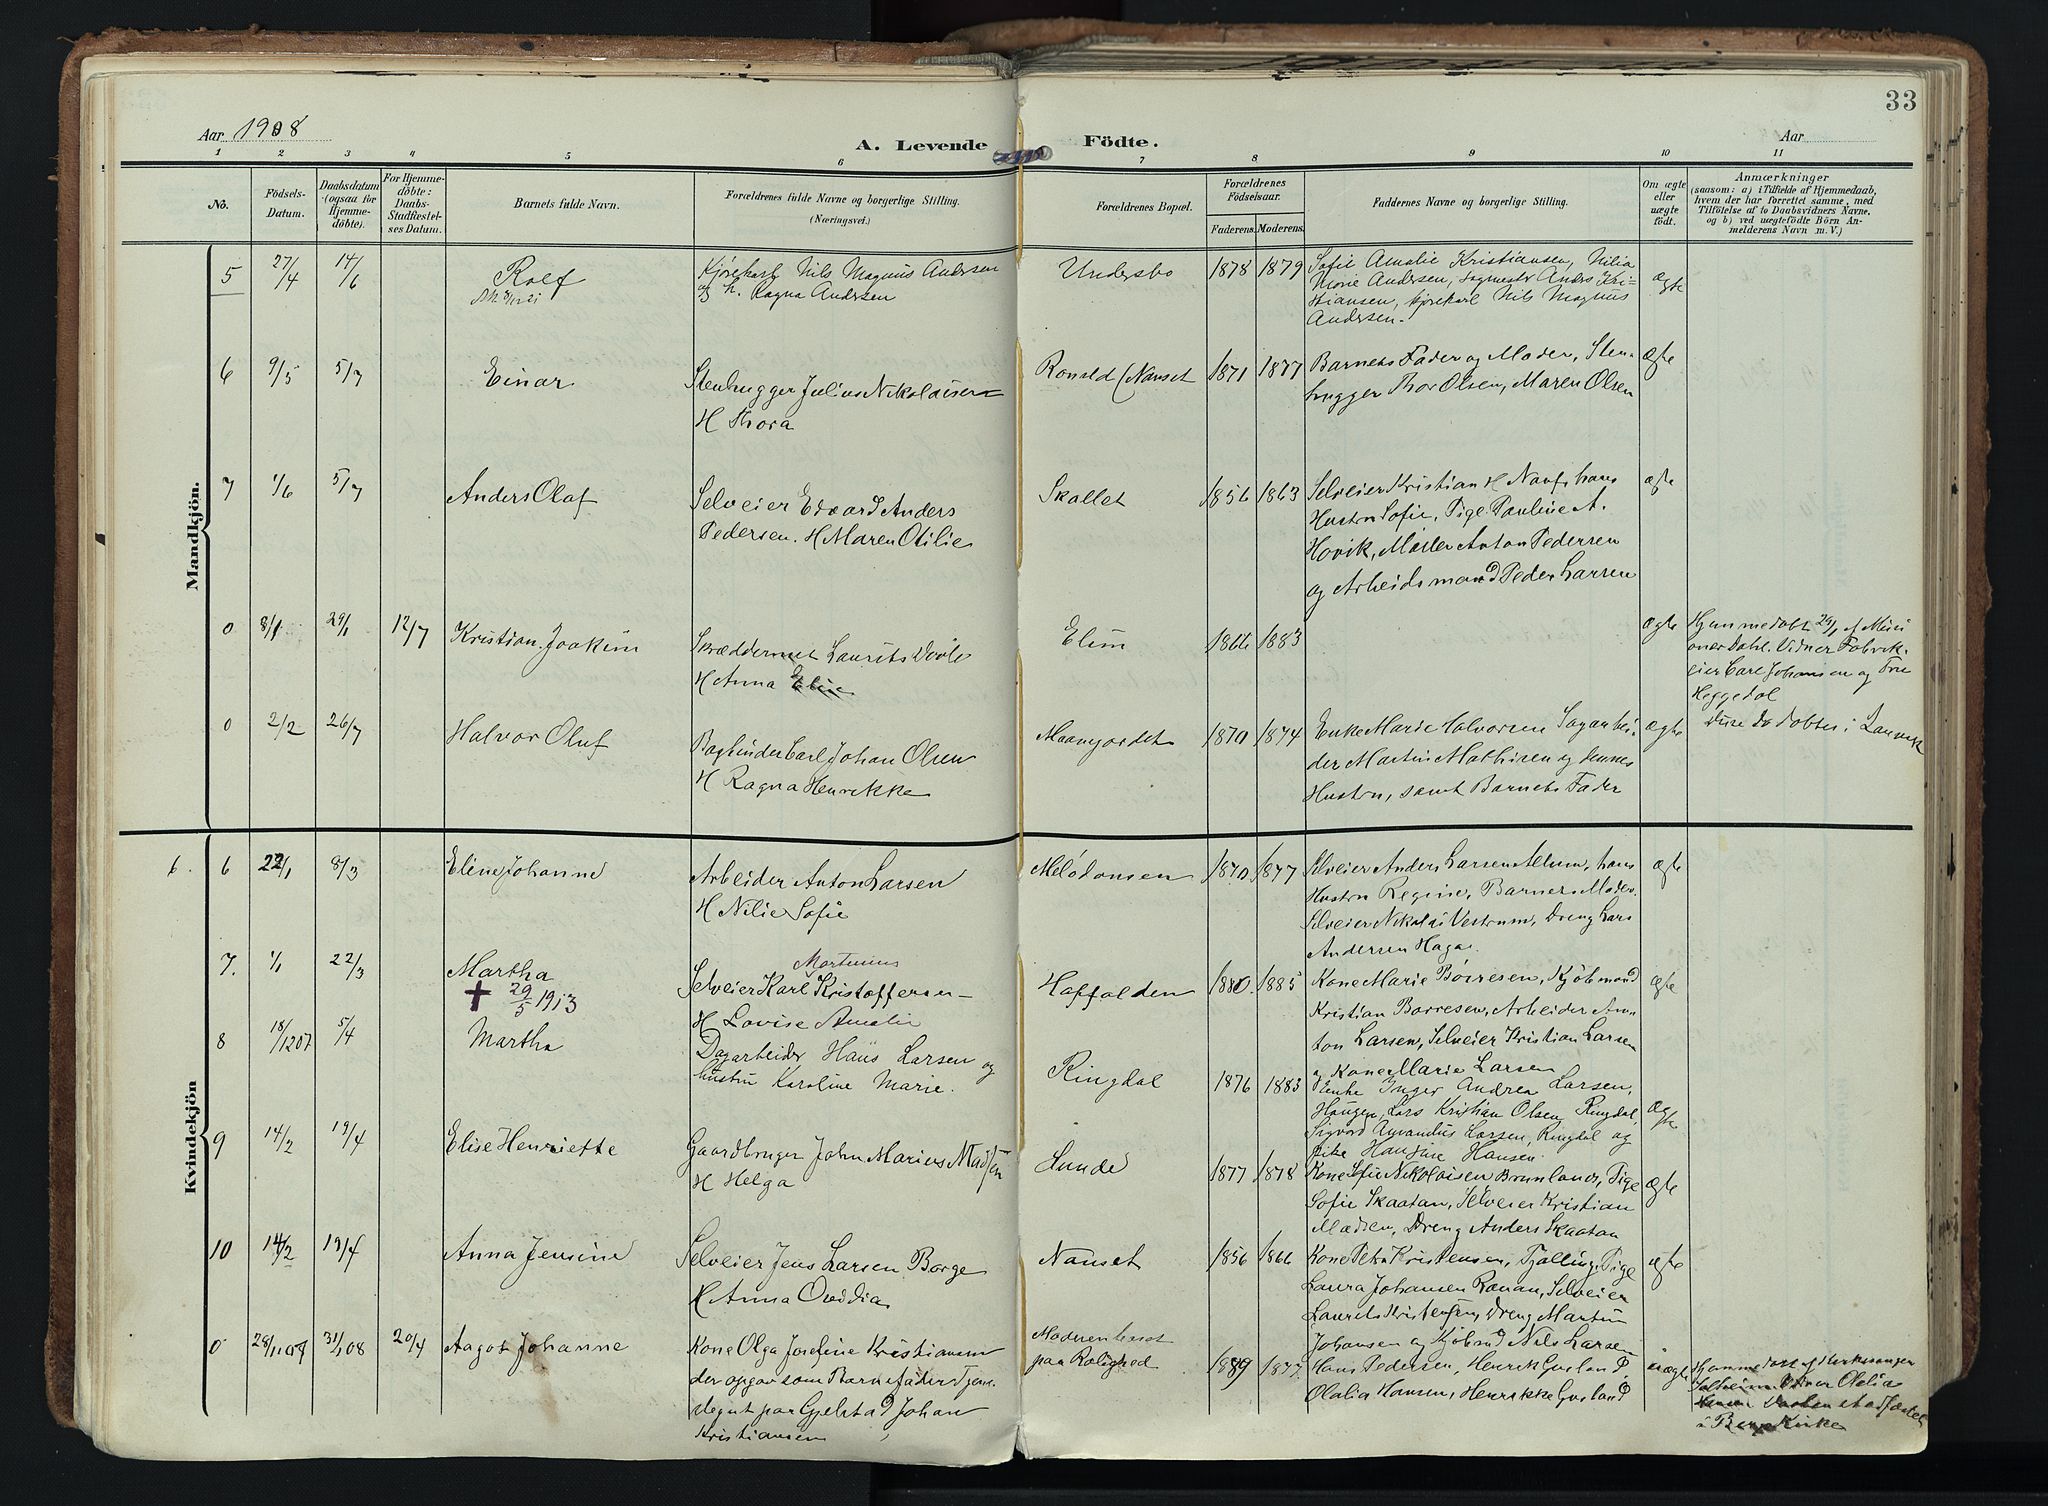 33
Aar 1908
A. Levende Födte.
Aar
1 2 3 4 5 6 7 8 9 10 11
No.
Födsels-Datum.
Daabsdatum (ogsaa for Hjemme-döbte).
For Hjemme-döbte: Daabs-Stadfæstel-ses Datum.
Barnets fulde Navn.
Forældrenes fulde Navne og borgerlige Stilling. (Næringsvei.)
Forældrenes Bopæl.
Forældrenes Födselsaar.
Faderens. Moderens.
Faddernes Navne og borgerlige Stilling.
Om ægte eller uægte födt.
Anmærkninger
(saasom: a) i Tilfælde af Hjemmedaab, hvem der har forrettet samme, med Tilföielse af to Daabsvidners Navne, og b) ved uægtefödte Börn An-melderens Navn m. V.)
Mandkjön.
5 27/4 14/6 Rolf
Kjørekarl Nils Magnus Andersen
og h. Ragna Andersen
Undersbo 1878 1879
Sofie Amalie Kristiansen, Nilia
Marie Andersen, Sagmester Anders Kri-
stiansen, kjørekarl Nils Magnus
Andersen.
ægte
6 9/5 5/7 Einar
Stenhugger Julius Nikolaisen
H Thora
Roneld (Nanset 1871 1877
Barnets Fader og Moder, Sten-
hugger Thor Olsen, Maren Olsen
ægte
7 1/6 5/7 Anders Olaf
Selveier Edvard Anders
Pedersen. H Maren Otilie
Skallet 1856 1863
Selveier Kristian H Nauf, hans
Hustru Sofie, Pige Pauline A.
Hovik, Maler Anton Pedersen
og Arbeidsmand Peder Larsen
ægte
0 8/1 29/1 12/7 Kristian Joakim
Skræddermst Laurits Dvole
H Anna Elise
Elim 1866 1883
ægte
Hjemmedøbt 29/1 af Misi
onær Dahl. Vidner Fabrik-
eier Carl Johansen og Frue
Heggedal
0 2/2 26/7 Halvor Oluf
Bagbinder Carl Johan Olsen
H Ragna Henrikke
Maanejordet 1870 1874
Enke Marie Halvorsen Sagarbei-
der Martin Mathisen og dennes
Hustru, samt Barnets Fader
ægte
Disse 2 døbtes i Laurvik
Kvindekjön
6. 6 22/1 8/3 Eline Johanne
Arbeider Anton Larsen
H Nilie Sofie
Melødansen 1870 1877
Selveier Anders Larsen Allum, hans
Hustru Regine, Barnets Moder,
Selveier Nikolai Vestrum, Dreng Lars
Andersen Haga.
ægte
7. 1/1 22/3 Martha
† 29/5 1913
Martinius
Selveier Karl Kristoffersen
H Lovise Amalie
Haffalden 1880. 1885
Kone Marie Børresen, Kjøbmand
Kristian Børresen, Arbeider An-
ton Larsen, Selveier Kristian Larsen
og Kone Marie Larsen
ægte
8 18/12 07 5/4 Martha
Dagarbeider Hans Larsen og
hustru Karoline Marie.
Ringdal 1876 1883
Enke Inger Andrea Larsen,
Haugen, Lars Kristian Olsen, Ringdal,
Sigvard Amandus Larsen, Ringdal og
pike Hansine Hansen.
ægte
9 14/2 19/4 Elise Henriette
Gaardbruger John Marius Madsen
H Helga
Sunde 1877 1878
Kone Sofie Nikolaisen Brunlanes, Pige
Sofie Skaatan, Selveier Kristian
Madsen, Dreng Anders Skaatan
ægte
10 14/2 19/4 Anna Jensine
Selveier Jens Larsen Borge
H Anna Ovidia
Nanset 1856 1866
Kone Petra Kristensen, Tjølling, Pige
Laura Johansen Ranan, Selveier
Laurits Kristensen, Dreng Martin
Johansen og Kjøbmd Nils Larsen
ægte
0 28/11 07 31/1 08 20/4 Aagot Johanne
Kone Olga Josefine Kristiansen
der opgav som Barnefader Tjene-
degut paa Gjelstad Johan
Kristiansen
Moderen bosat
paa Rolighed 1889 1877
Hans Pedersen, Henrik Gusland,
Olalia Hansen, Henrikke Gusland
uægte
Hjemmedøbt af Kirkesanger
Solheim Vidner Olalia
Hansen Daaben stadfæstet
i Berg Kirke